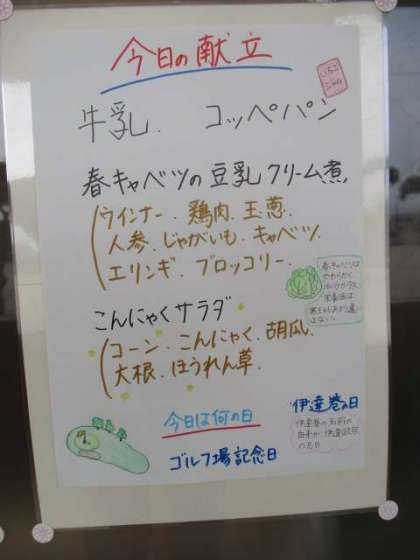 今日の献立
いちごジャム
牛乳. コッペパン
春キャベツの豆乳クリーム煮
ウインナー. 鶏肉. 玉恵.
人参. じゃがいも. キャベツ.
エリンギ. ブロッコリー.
春キャベツは
やわらかく
こんにゃくサラダ
コーン. こんにゃく. 胡瓜.
大根. ほうれん草.
今日は何の日
ゴルフ場記念日
伊達巻の日
伊達巻の名前の
由来が伊達政宗
の忌日